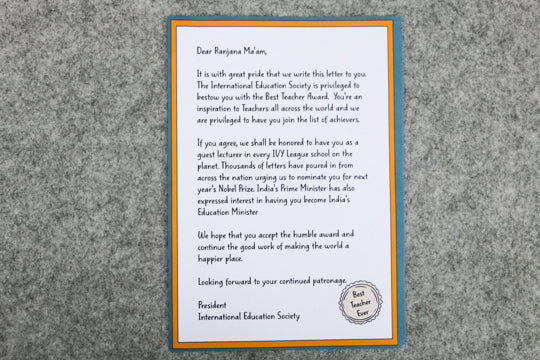 Dear Ranjana Ma'am,
It is with great pride that we write this letter to you.
The International Education Society is privileged to
bestow you with the Best Teacher Award. You're an
inspiration to Teachers all across the world and we
are privileged to have you join the list of achievers.
If you agree, we shall be honored to have you as a
guest lecturer in every IVY League school on the
planet. Thousands of letters have poured in from
across the nation urging us to nominate you for next
year's Nobel Prize. India's Prime Minister has also
expressed interest in having you become India's
Education Minister
We hope that you accept the humble award and
continue the good work of making the world a
happier place.
Looking forward to your continued patronage.
President
International Education Society
Best
Teacher
Ever